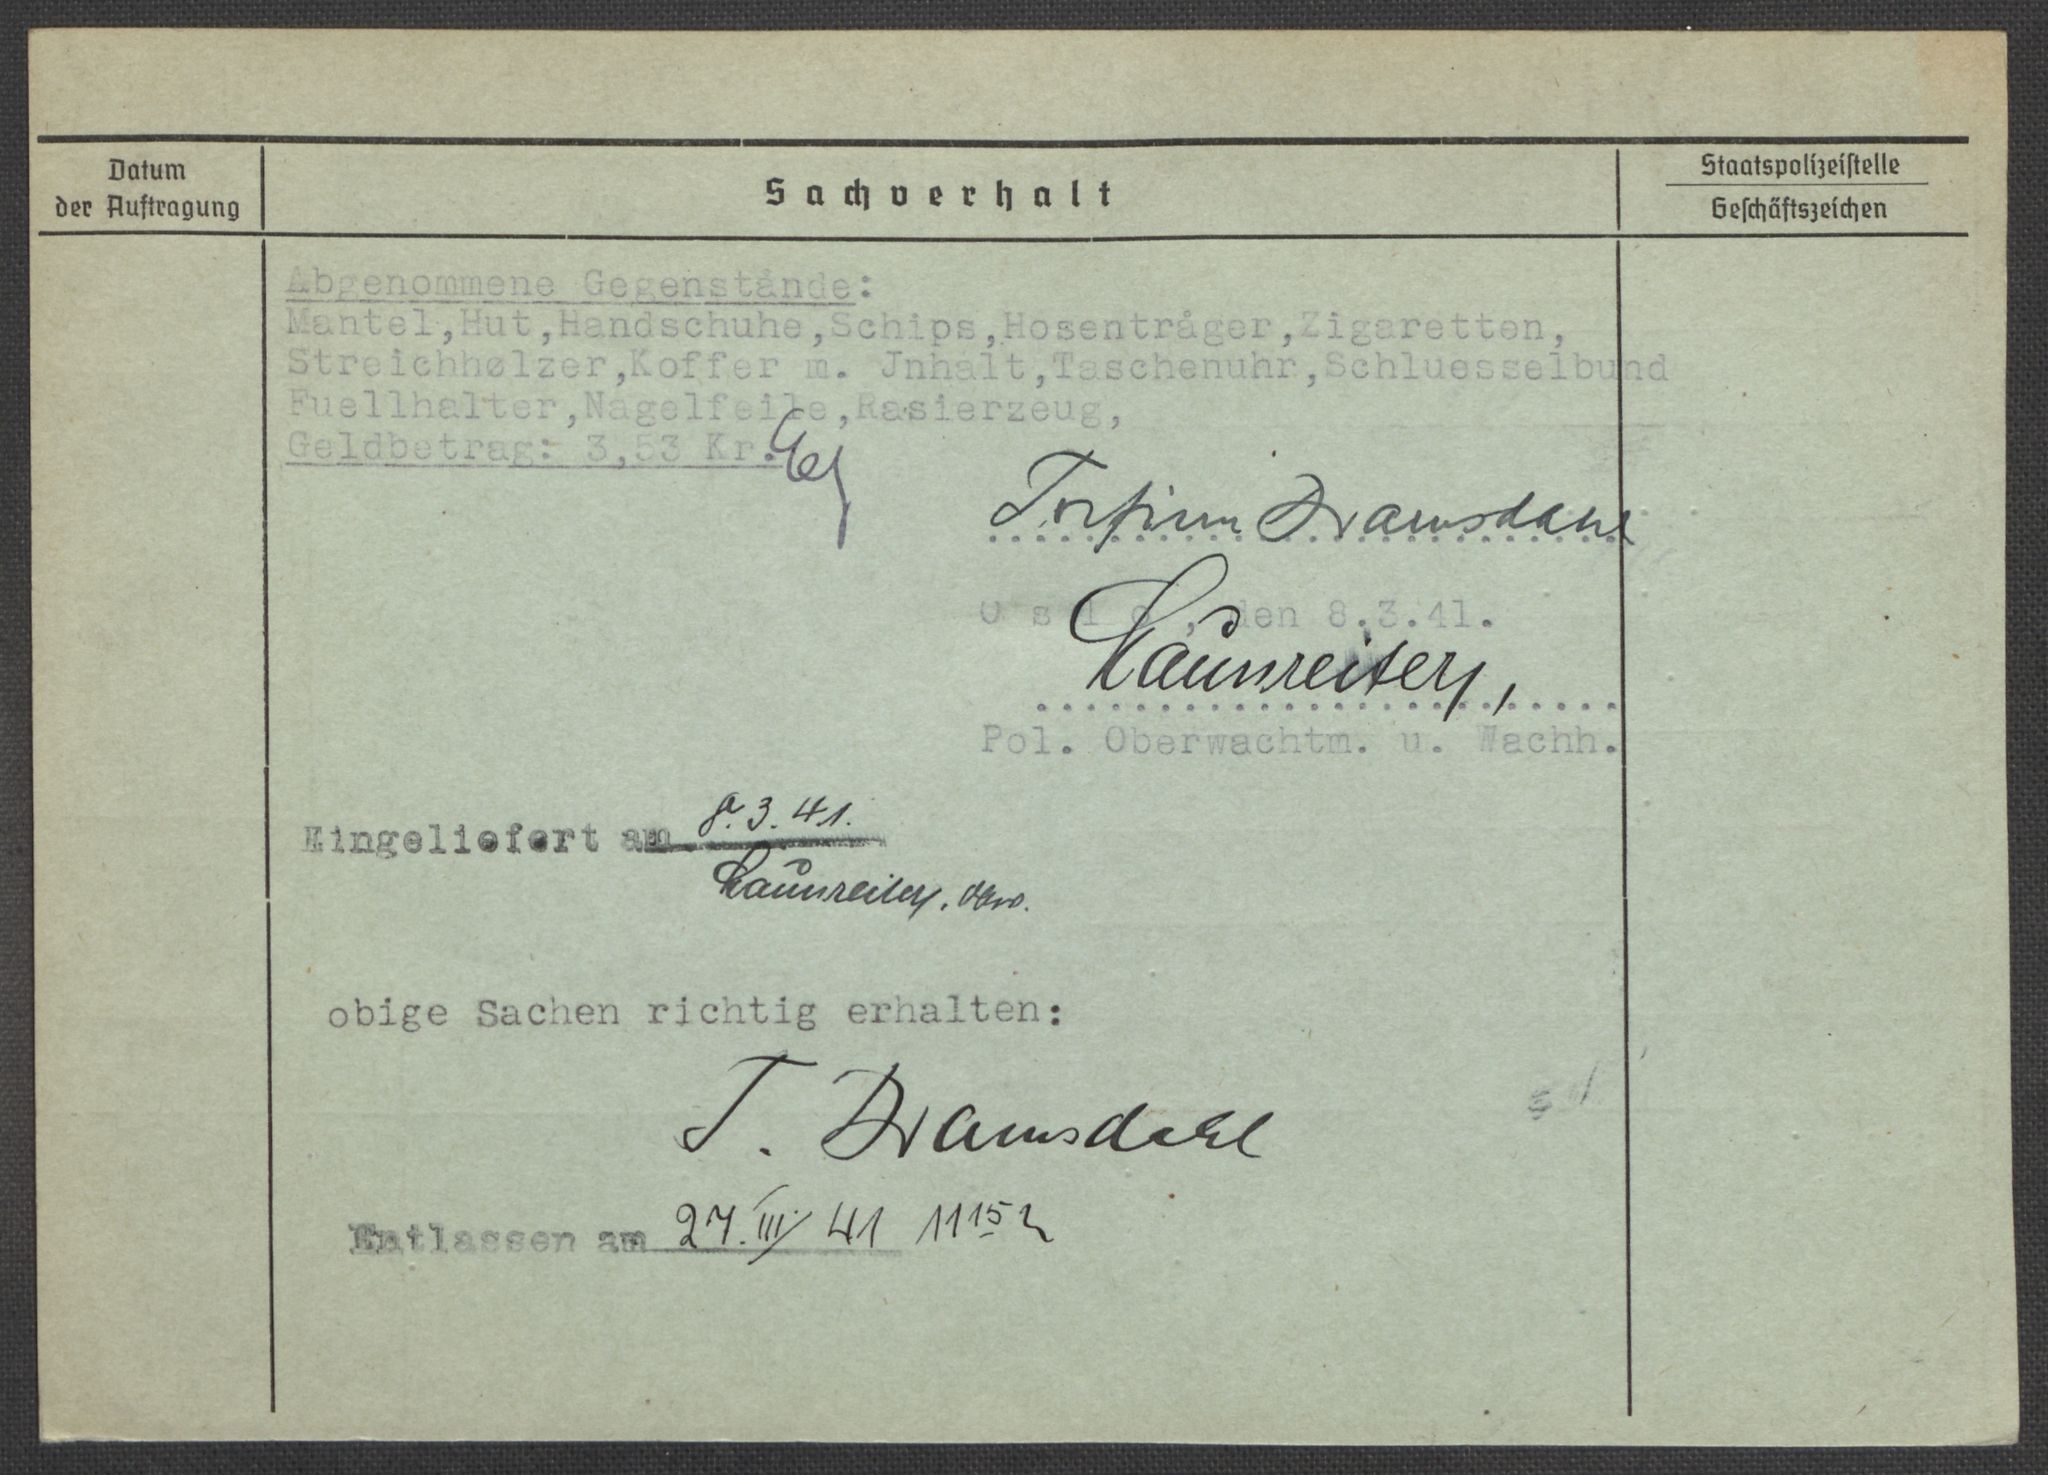 Datum
der Auftragung
Sachverhalt
Staatspolizeistelle
Geschäftszeichen
Abgenommene Gegenstånde:
Mantel,Hut,Handschuhe,Schips,Hosentråger,Zigaretten,
Streichhølzer,Koffer m. Jnhalt,Taschenuhr,Schluesselbund
Fuellhalter,Nagelfeile,Rasierzeug,
Geldbetrag: 3,53 Kr.
Torfinn Dramsdahl
Oslo, den 8.3.41.
Launreiter,
Pol. Oberwachtm. u. Wachh.
Eingeliefert am 8.3.41.
Launreiter,
obige Sachen richtig erhalten:
T. Dramsdahl
Entlassen am 27.III 41 11 15 h